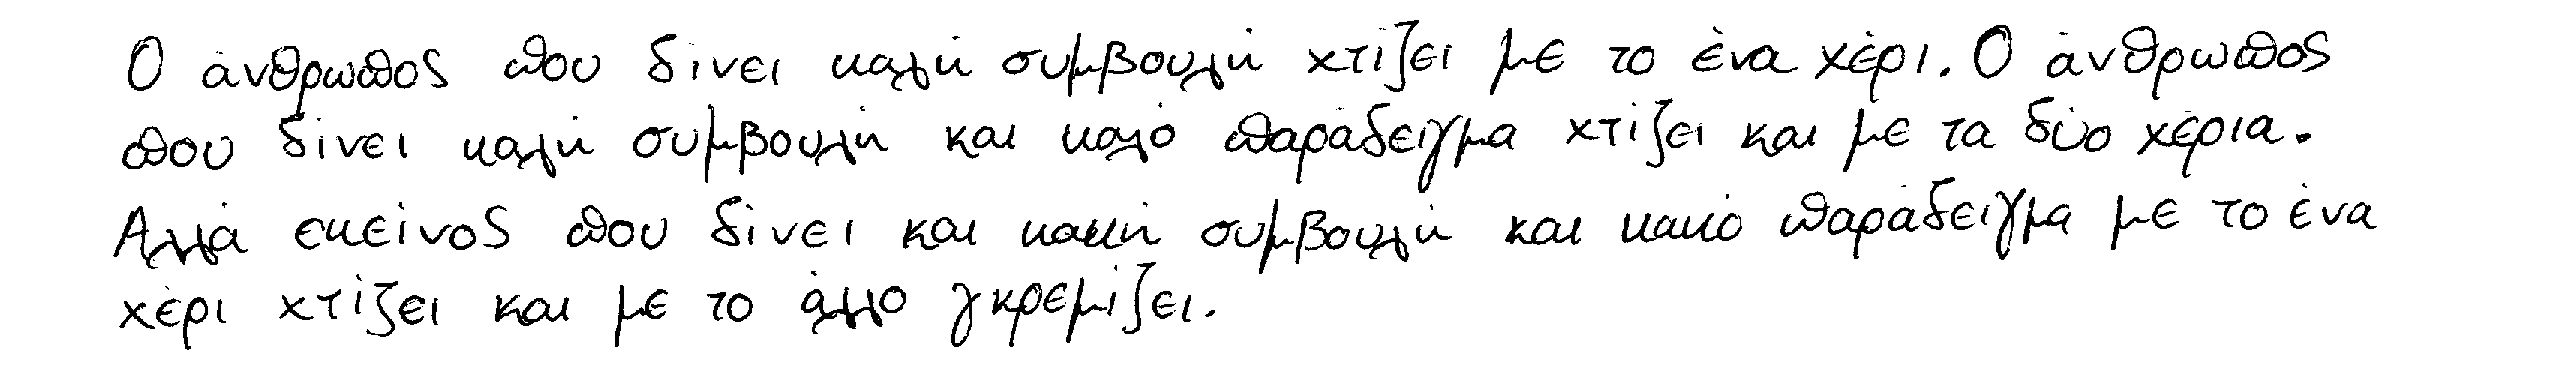 Ο άνθρωπος που δίνει καλή συμβουλή χτίζει με το ένα χέρι. Ο άνθρωπος
που δίνει καλή συμβουλή και καλό παράδειγμα χτίζει και με τα δύο χέρια.
Αλλά εκείνος που δίνει και κακή συμβουλή και κακό παράδειγμα με το ένα
χέρι χτίζει και με το άλλο γκρεμίζει.